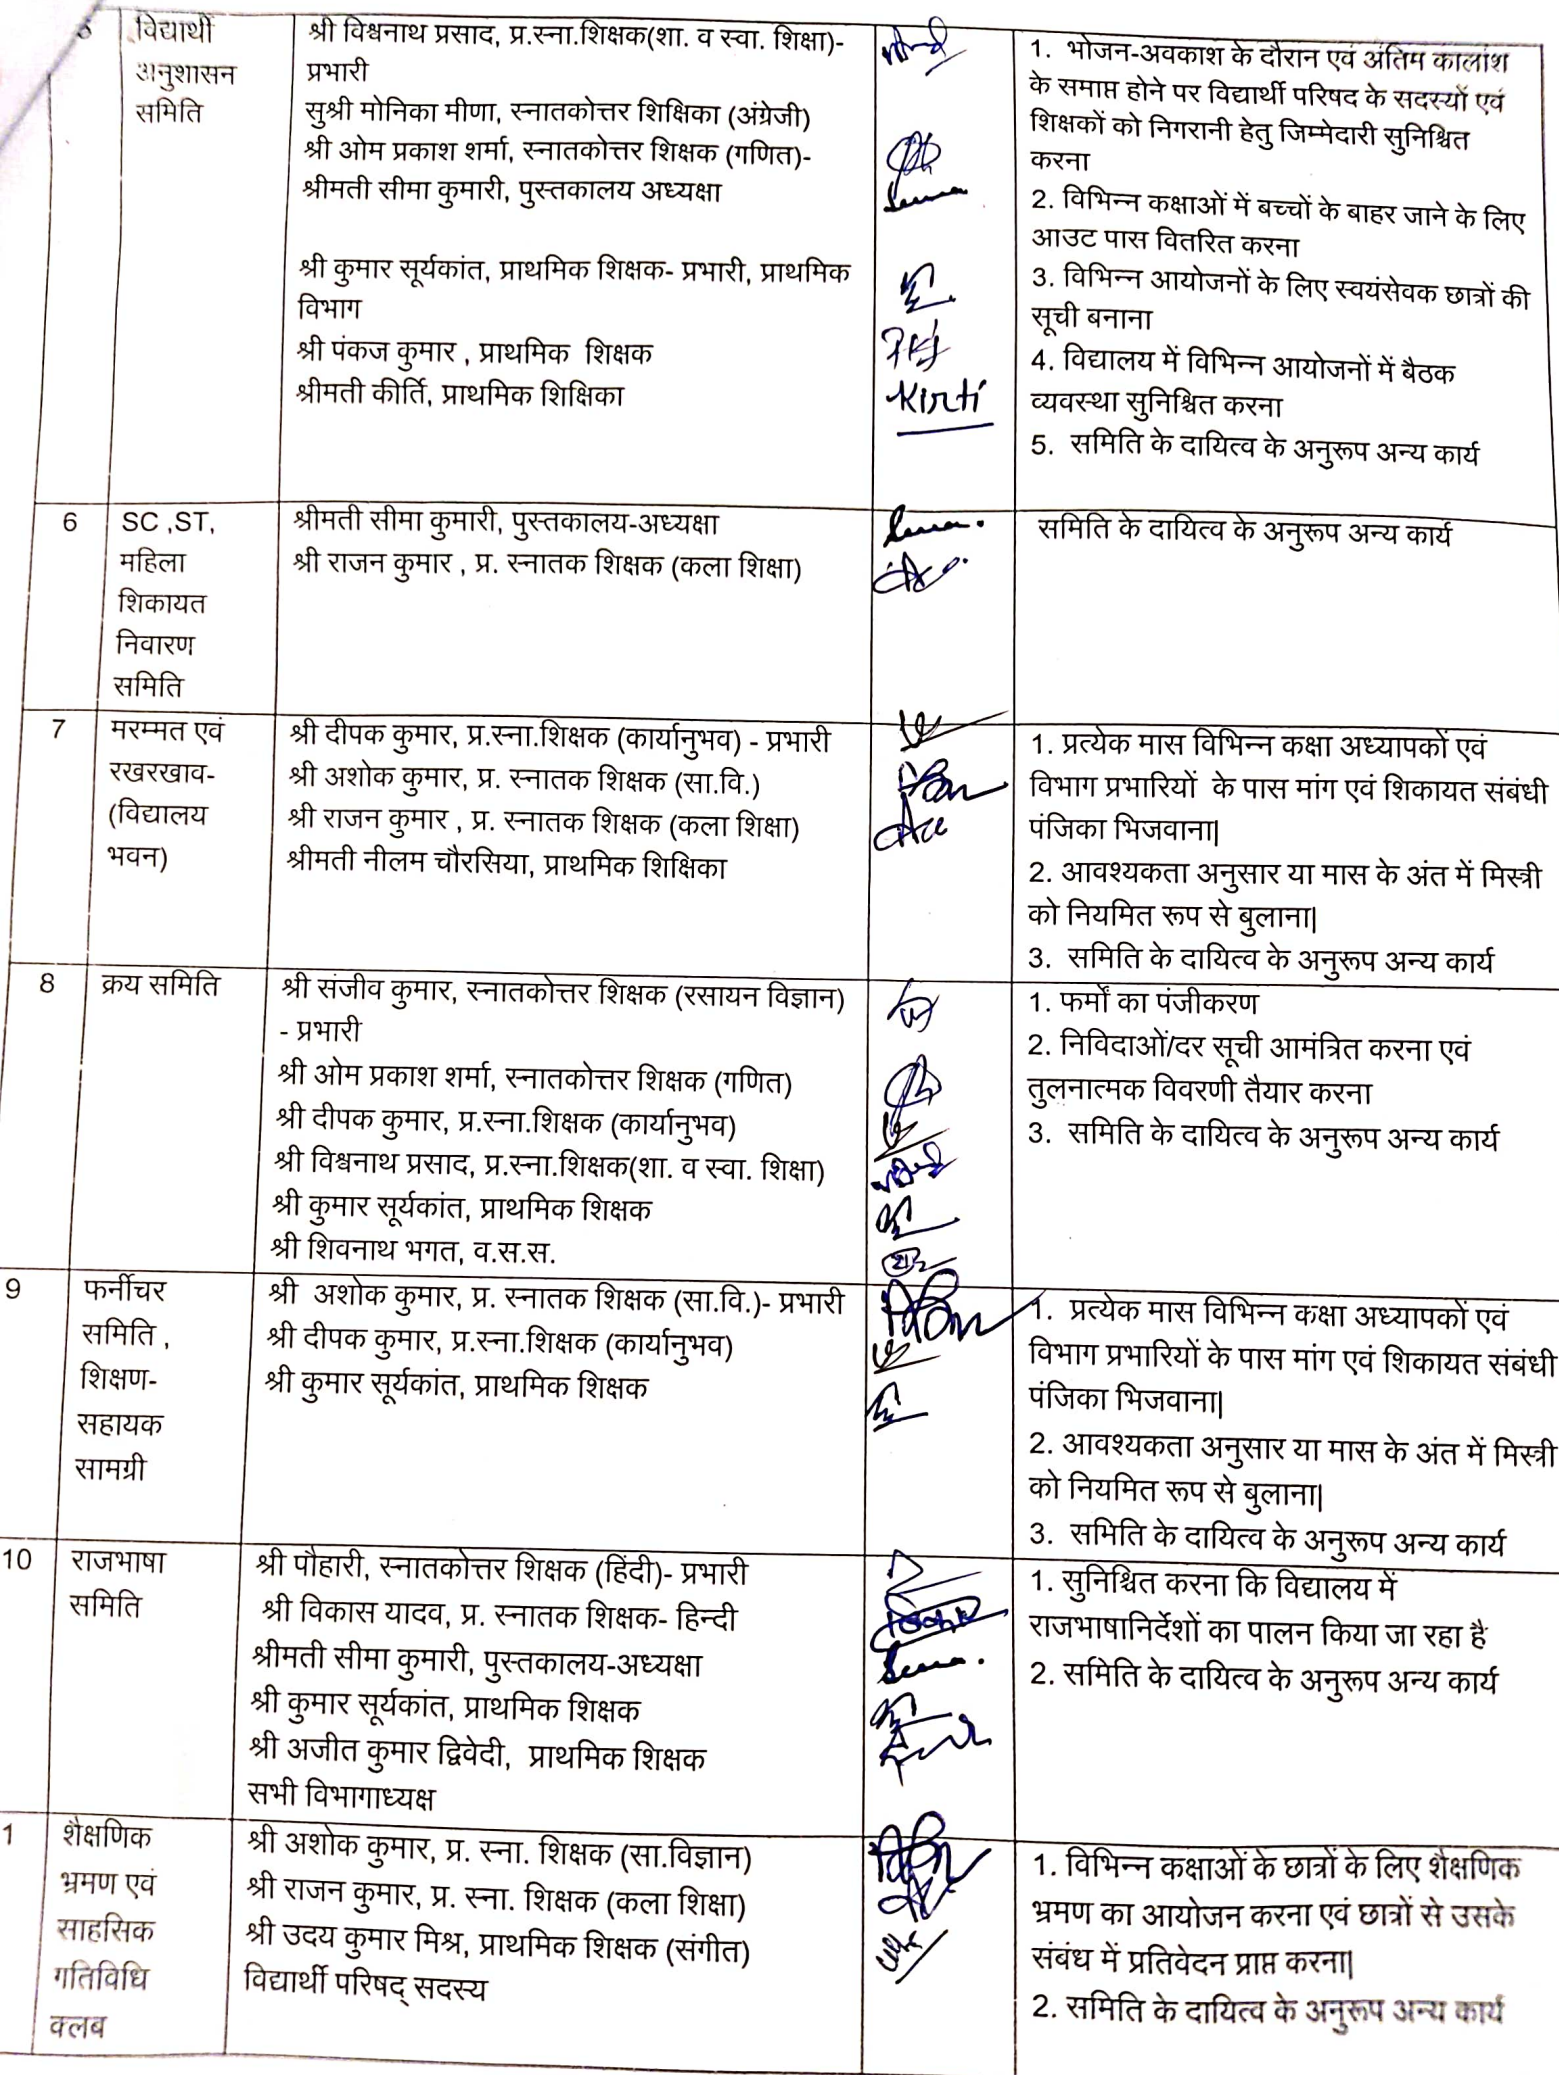 5
विद्यार्थी
अनुशासन
समिति
श्री विश्वनाथ प्रसाद, प्र.स्ना.शिक्षक(शा. व स्वा. शिक्षा)-
प्रभारी
सुश्री मोनिका मीणा, स्नातकोत्तर शिक्षिका (अंग्रेजी)
श्री ओम प्रकाश शर्मा, स्नातकोत्तर शिक्षक (गणित)-
श्रीमती सीमा कुमारी, पुस्तकालय अध्यक्षा
श्री कुमार सूर्यकांत, प्राथमिक शिक्षक- प्रभारी, प्राथमिक
विभाग
श्री पंकज कुमार , प्राथमिक शिक्षक
श्रीमती कीर्ति, प्राथमिक शिक्षिका
Kirti
1. भोजन-अवकाश के दौरान एवं अंतिम कालांश
के समाप्त होने पर विद्यार्थी परिषद के सदस्यों एवं
शिक्षकों को निगरानी हेतु जिम्मेदारी सुनिश्चित
करना
2. विभिन्न कक्षाओं में बच्चों के बाहर जाने के लिए
आउट पास वितरित करना
3. विभिन्न आयोजनों के लिए स्वयंसेवक छात्रों की
सूची बनाना
4. विद्यालय में विभिन्न आयोजनों में बैठक
व्यवस्था सुनिश्चित करना
5. समिति के दायित्व के अनुरूप अन्य कार्य
6
SC ,ST,
महिला
शिकायत
निवारण
समिति
श्रीमती सीमा कुमारी, पुस्तकालय-अध्यक्षा
श्री राजन कुमार , प्र. स्नातक शिक्षक (कला शिक्षा)
समिति के दायित्व के अनुरूप अन्य कार्य
7
मरम्मत एवं
रखरखाव-
(विद्यालय
भवन)
श्री दीपक कुमार, प्र.स्ना.शिक्षक (कार्यानुभव) - प्रभारी
श्री अशोक कुमार, प्र. स्नातक शिक्षक (सा.वि.)
श्री राजन कुमार , प्र. स्नातक शिक्षक (कला शिक्षा)
श्रीमती नीलम चौरसिया, प्राथमिक शिक्षिका
1. प्रत्येक मास विभिन्न कक्षा अध्यापकों एवं
विभाग प्रभारियों के पास मांग एवं शिकायत संबंधी
पंजिका भिजवाना|
2. आवश्यकता अनुसार या मास के अंत में मिस्त्री
को नियमित रूप से बुलाना|
3. समिति के दायित्व के अनुरूप अन्य कार्य
8
क्रय समिति
श्री संजीव कुमार, स्नातकोत्तर शिक्षक (रसायन विज्ञान)
- प्रभारी
श्री ओम प्रकाश शर्मा, स्नातकोत्तर शिक्षक (गणित)
श्री दीपक कुमार, प्र.स्ना.शिक्षक (कार्यानुभव)
श्री विश्वनाथ प्रसाद, प्र.स्ना.शिक्षक(शा. व स्वा. शिक्षा)
श्री कुमार सूर्यकांत, प्राथमिक शिक्षक
श्री शिवनाथ भगत, व.स.स.
1. फर्मों का पंजीकरण
2. निविदाओं/दर सूची आमंत्रित करना एवं
तुलनात्मक विवरणी तैयार करना
3. समिति के दायित्व के अनुरूप अन्य कार्य
9
फर्नीचर
समिति ,
शिक्षण-
सहायक
सामग्री
श्री अशोक कुमार, प्र. स्नातक शिक्षक (सा.वि.)- प्रभारी
श्री दीपक कुमार, प्र.स्ना.शिक्षक (कार्यानुभव)
श्री कुमार सूर्यकांत, प्राथमिक शिक्षक
1. प्रत्येक मास विभिन्न कक्षा अध्यापकों एवं
विभाग प्रभारियों के पास मांग एवं शिकायत संबंधी
पंजिका भिजवाना|
2. आवश्यकता अनुसार या मास के अंत में मिस्त्री
को नियमित रूप से बुलाना|
3. समिति के दायित्व के अनुरूप अन्य कार्य
10
राजभाषा
समिति
श्री पौहारी, स्नातकोत्तर शिक्षक (हिंदी)- प्रभारी
श्री विकास यादव, प्र. स्नातक शिक्षक- हिन्दी
श्रीमती सीमा कुमारी, पुस्तकालय-अध्यक्षा
श्री कुमार सूर्यकांत, प्राथमिक शिक्षक
श्री अजीत कुमार द्विवेदी, प्राथमिक शिक्षक
सभी विभागाध्यक्ष
1. सुनिश्चित करना कि विद्यालय में
राजभाषानिर्देशों का पालन किया जा रहा है
2. समिति के दायित्व के अनुरूप अन्य कार्य
1
शैक्षणिक
भ्रमण एवं
साहसिक
गतिविधि
क्लब
श्री अशोक कुमार, प्र. स्ना. शिक्षक (सा.विज्ञान)
श्री राजन कुमार, प्र. स्ना. शिक्षक (कला शिक्षा)
श्री उदय कुमार मिश्र, प्राथमिक शिक्षक (संगीत)
विद्यार्थी परिषद् सदस्य
1. विभिन्न कक्षाओं के छात्रों के लिए शैक्षणिक
भ्रमण का आयोजन करना एवं छात्रों से उसके
संबंध में प्रतिवेदन प्राप्त करना|
2. समिति के दायित्व के अनुरूप अन्य कार्य